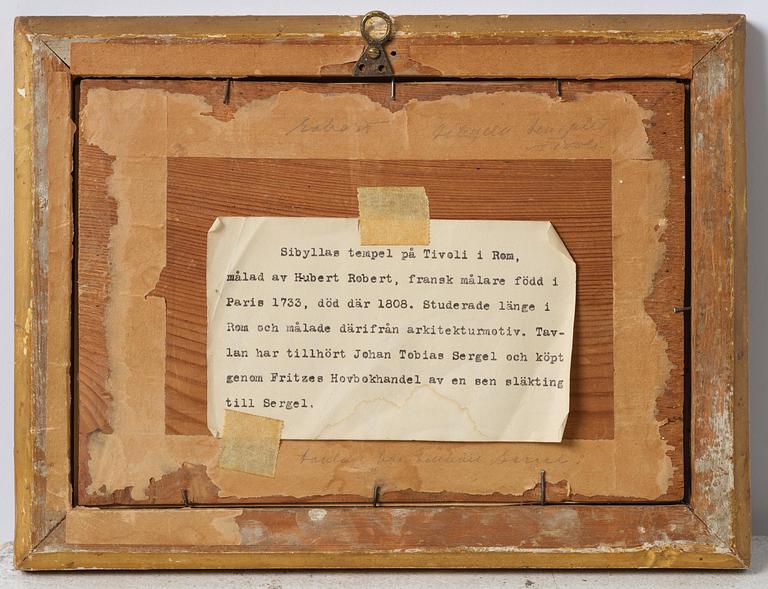 Robert Sibyllas tempel
Tivoli
Sibyllas tempel på Tivoli i Rom,
målad av Hubert Robert, fransk målare född i
Paris 1733, död där 1808. Studerade länge i
Rom och målade därifrån arkitekturmotiv. Tav-
lan har tillhört Johan Tobias Sergel och köpt
genom Fritzes Hovbokhandel av en sen släkting
till Sergel.
har tillhört Sergel